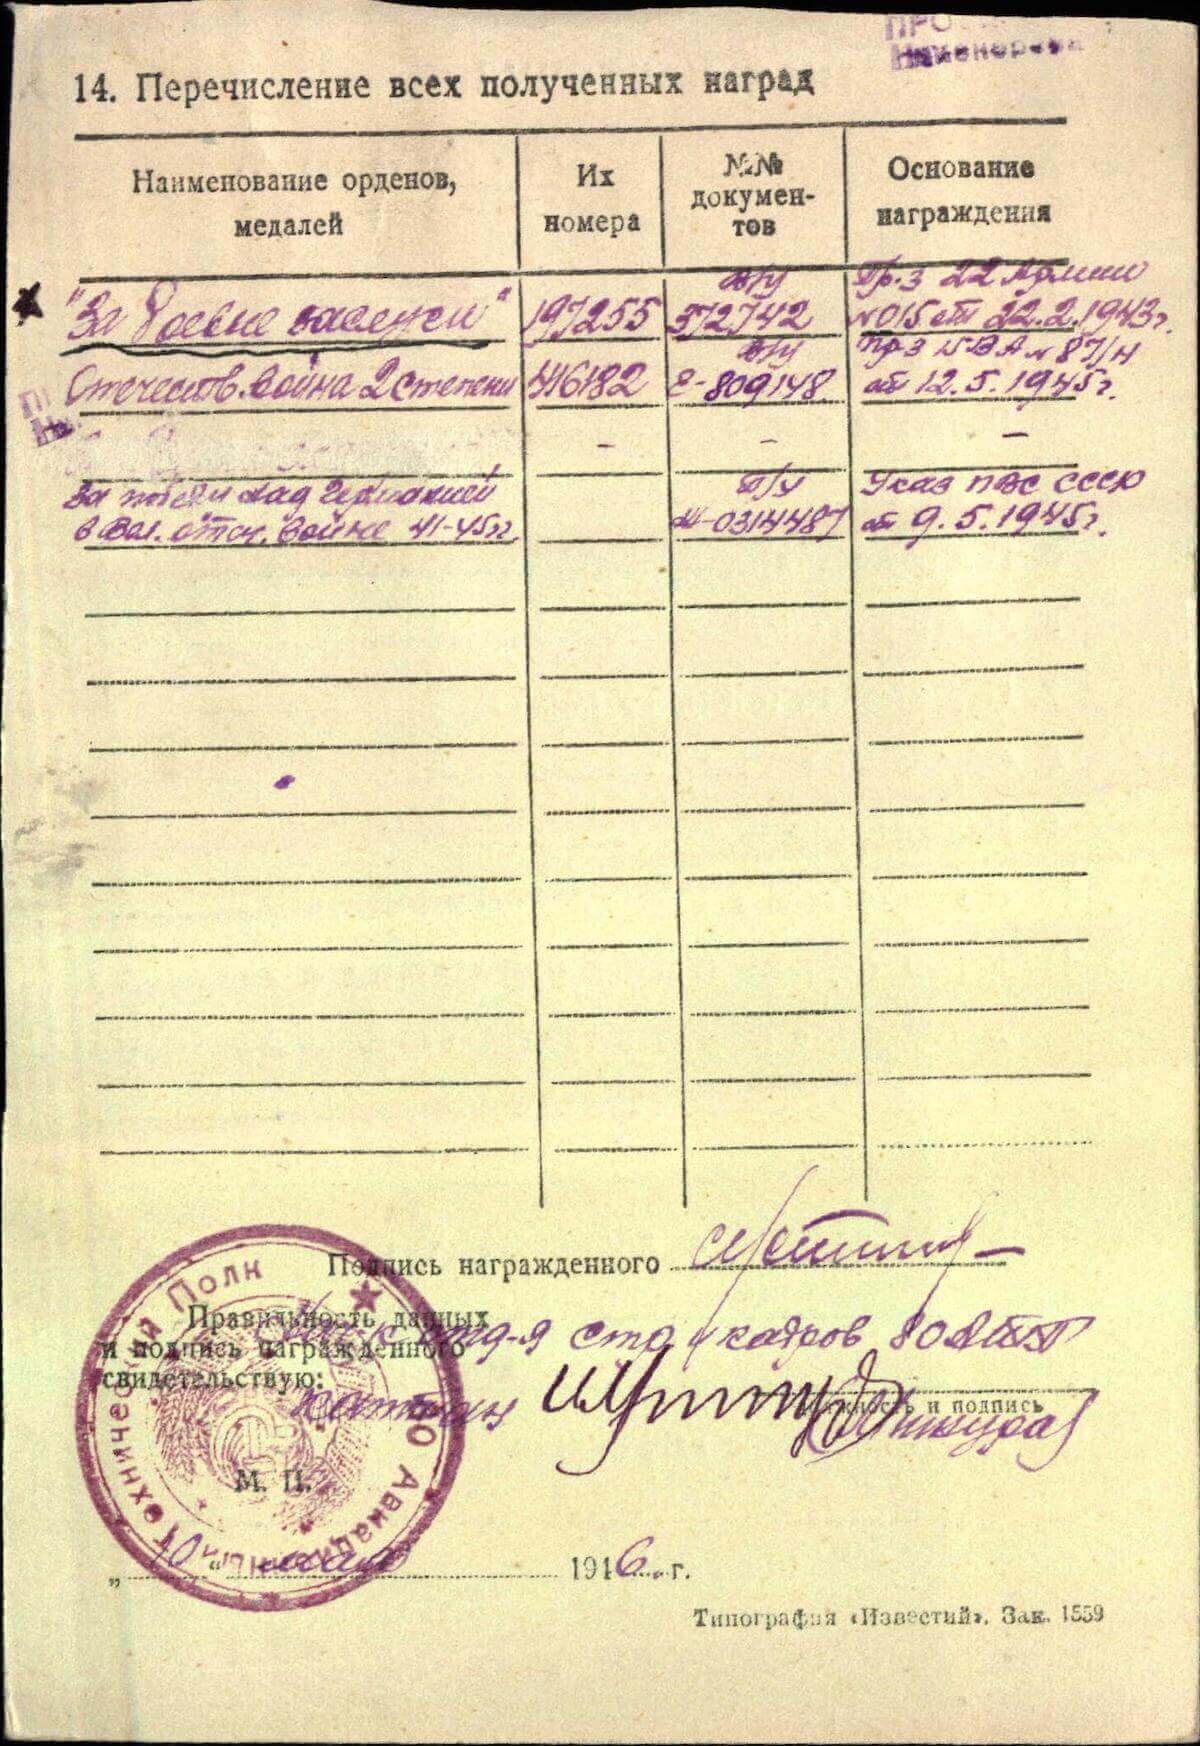 14. Перечисление всех полученных наград
Наименование орденов,
медалей
Их
номера
№№
докумен-
тов
Основание
награждения
"За боевые заслуги"
197255
в/у
372742
Пр-з 22 Армии
№ 015 от 22.2.1943г.
Отечествен. война 2 степени
416182
в/у
Е-809148
Пр-з 15 ВА № 87/н
от 12.5.1945г.
-
-
-
За победу над Германией
в Вел. отеч. войне 41-45гг.
Т/у
0314487
Указ ПВС СССР
от 9.5.1945г.
Подпись награжденного
Правильность данных
и подпись награжденного
свидетельствую:
Нач-к отд-я стр. и кадров 80 АТП
капитан
должность и подпись
М. П.
80 Авиационный Технический Полк
„10“ мая 1946 г.
Типография «Известий». Зак. 1559